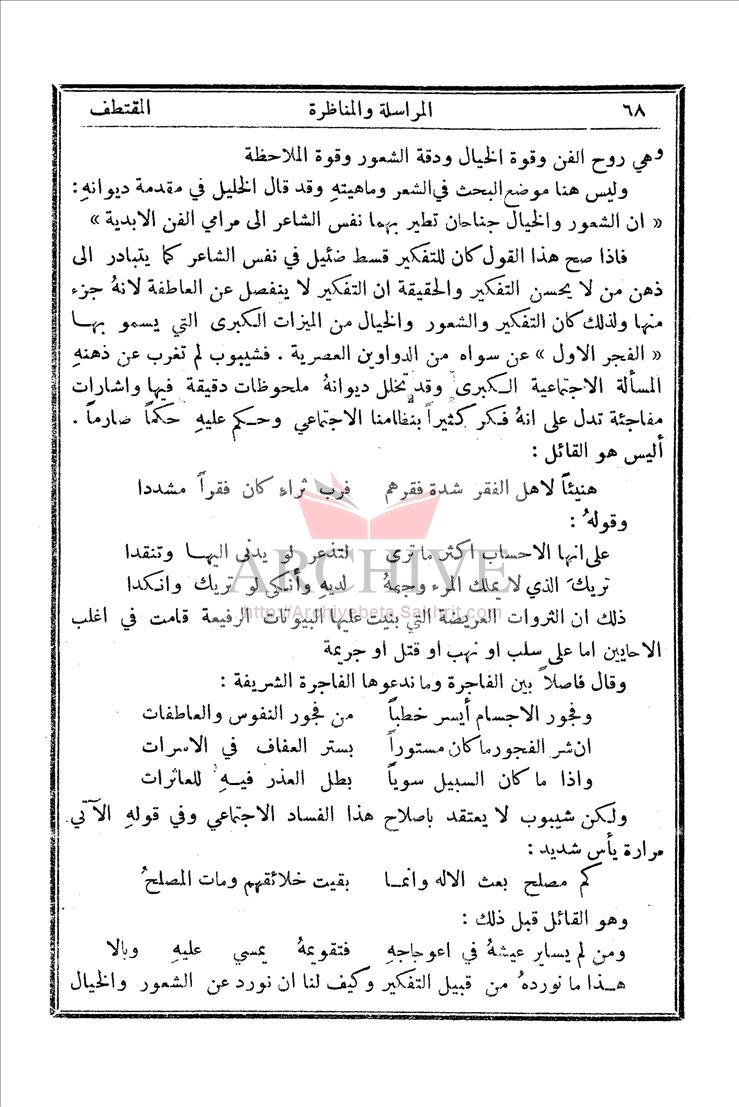 ٦٨ المراسلة والمناظرة المقتطف
وهي روح الفن وقوة الخيال ودقة الشعور وقوة الملاحظة
وليس هنا موضع البحث في الشعر وماهيتهِ وقد قال الخليل في مقدمة ديوانهِ:
« ان الشعور والخيال جناحان تطير بهما نفس الشاعر الى مرامي الفن الابدية »
فاذا صح هذا القول كان للتفكير قسط ضئيل في نفس الشاعر كما يتبادر الى
ذهن من لا يحسن التفكير والحقيقة ان التفكير لا ينفصل عن العاطفة لانهُ جزء
منها ولذلك كان التفكير والشعور والخيال من الميزات الكبرى التي يسمو بها
« الفجر الاول » عن سواه من الدواوين العصرية . فشيبوب لم تغرب عن ذهنهِ
المسألة الاجتماعية الكبرى وقد تخلل ديوانهُ ملحوظات دقيقة فيها واشارات
مفاجئة تدل على انهُ فكر كثيراً بنظامنا الاجتماعي وحكم عليهِ حكماً صارماً .
أليس هو القائل :
هنيئاً لاهل الفقر شدة فقرهم فرب ثراءٍ كان فقراً مشددا
وقولهُ :
على انها الاحساب اكثر ما ترى لتذعر لو يدنى اليها وتنقدا
تريكَ الذي لا يملك المرء وجههُ لديهِ وأنكى لو تريك وانكدا
ARCHIVE
http://Archivebeta.Sakhrit.com
ذلك ان الثروات العريضة التي بنيت عليها البيوتات الرفيعة قامت في اغلب
الاحايين اما على سلب او نهب او قتل او جريمة
وقال فاصلاً بين الفاجرة وما ندعوها الفاجرة الشريفة :
وفجور الاجسام أيسر خطباً من فجور النفوس والعاطفات
ان شر الفجور ما كان مستوراً بستر العفاف في الاسرات
واذا ما كان السبيل سوياً بطل العذر فيهِ للعاثرات
ولكن شيبوب لا يعتقد باصلاح هذا الفساد الاجتماعي وفي قولهِ الآتي
مرارة يأس شديد :
كم مصلح بعث الاله وانما بقيت خلائقهم ومات المصلحُ
وهو القائل قبل ذلك :
ومن لم يساير عيشهُ في اعوجاجهِ فتقويمهُ يمسي عليهِ وبالا
هذا ما نوردهُ من قبيل التفكير وكيف لنا ان نورد عن الشعور والخيال